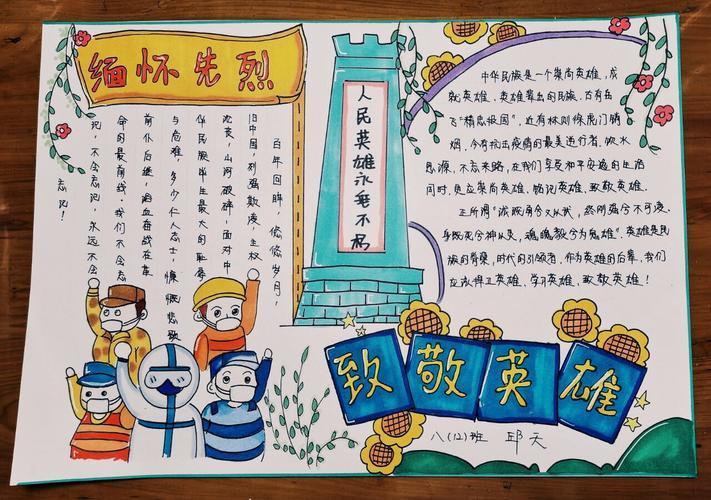 缅怀先烈
百年回眸,悠悠岁月,
旧中国,列强欺凌,主权
沦丧,山河破碎,面对中
华民族毕生最大的耻辱
与危难,多少仁人志士,慷慨悲歌
前仆后继,浴血奋战在革
命的最前线。我们不会忘
记,不会忘记,永远不会
忘记!
人民英雄永垂不朽
中华民族是一个崇尚英雄,成
就英雄,英雄辈出的民族,古有岳
飞"精忠报国",近有林则徐虎门销
烟,今有抗击疫情的最美逆行者,饮水
思源,不忘来路,在我们享受和平安逸的生活
同时,更应崇尚英雄,铭记英雄,致敬英雄.
正所谓"诚既勇兮又以武,终刚强兮不可凌,
身既死兮神以灵,魂魄毅兮为鬼雄".英雄是民
族的脊梁,时代的引领者,作为英雄的后辈,我们
英雄,学习英雄,致敬英雄!
致敬英雄
八(12)班 邱天